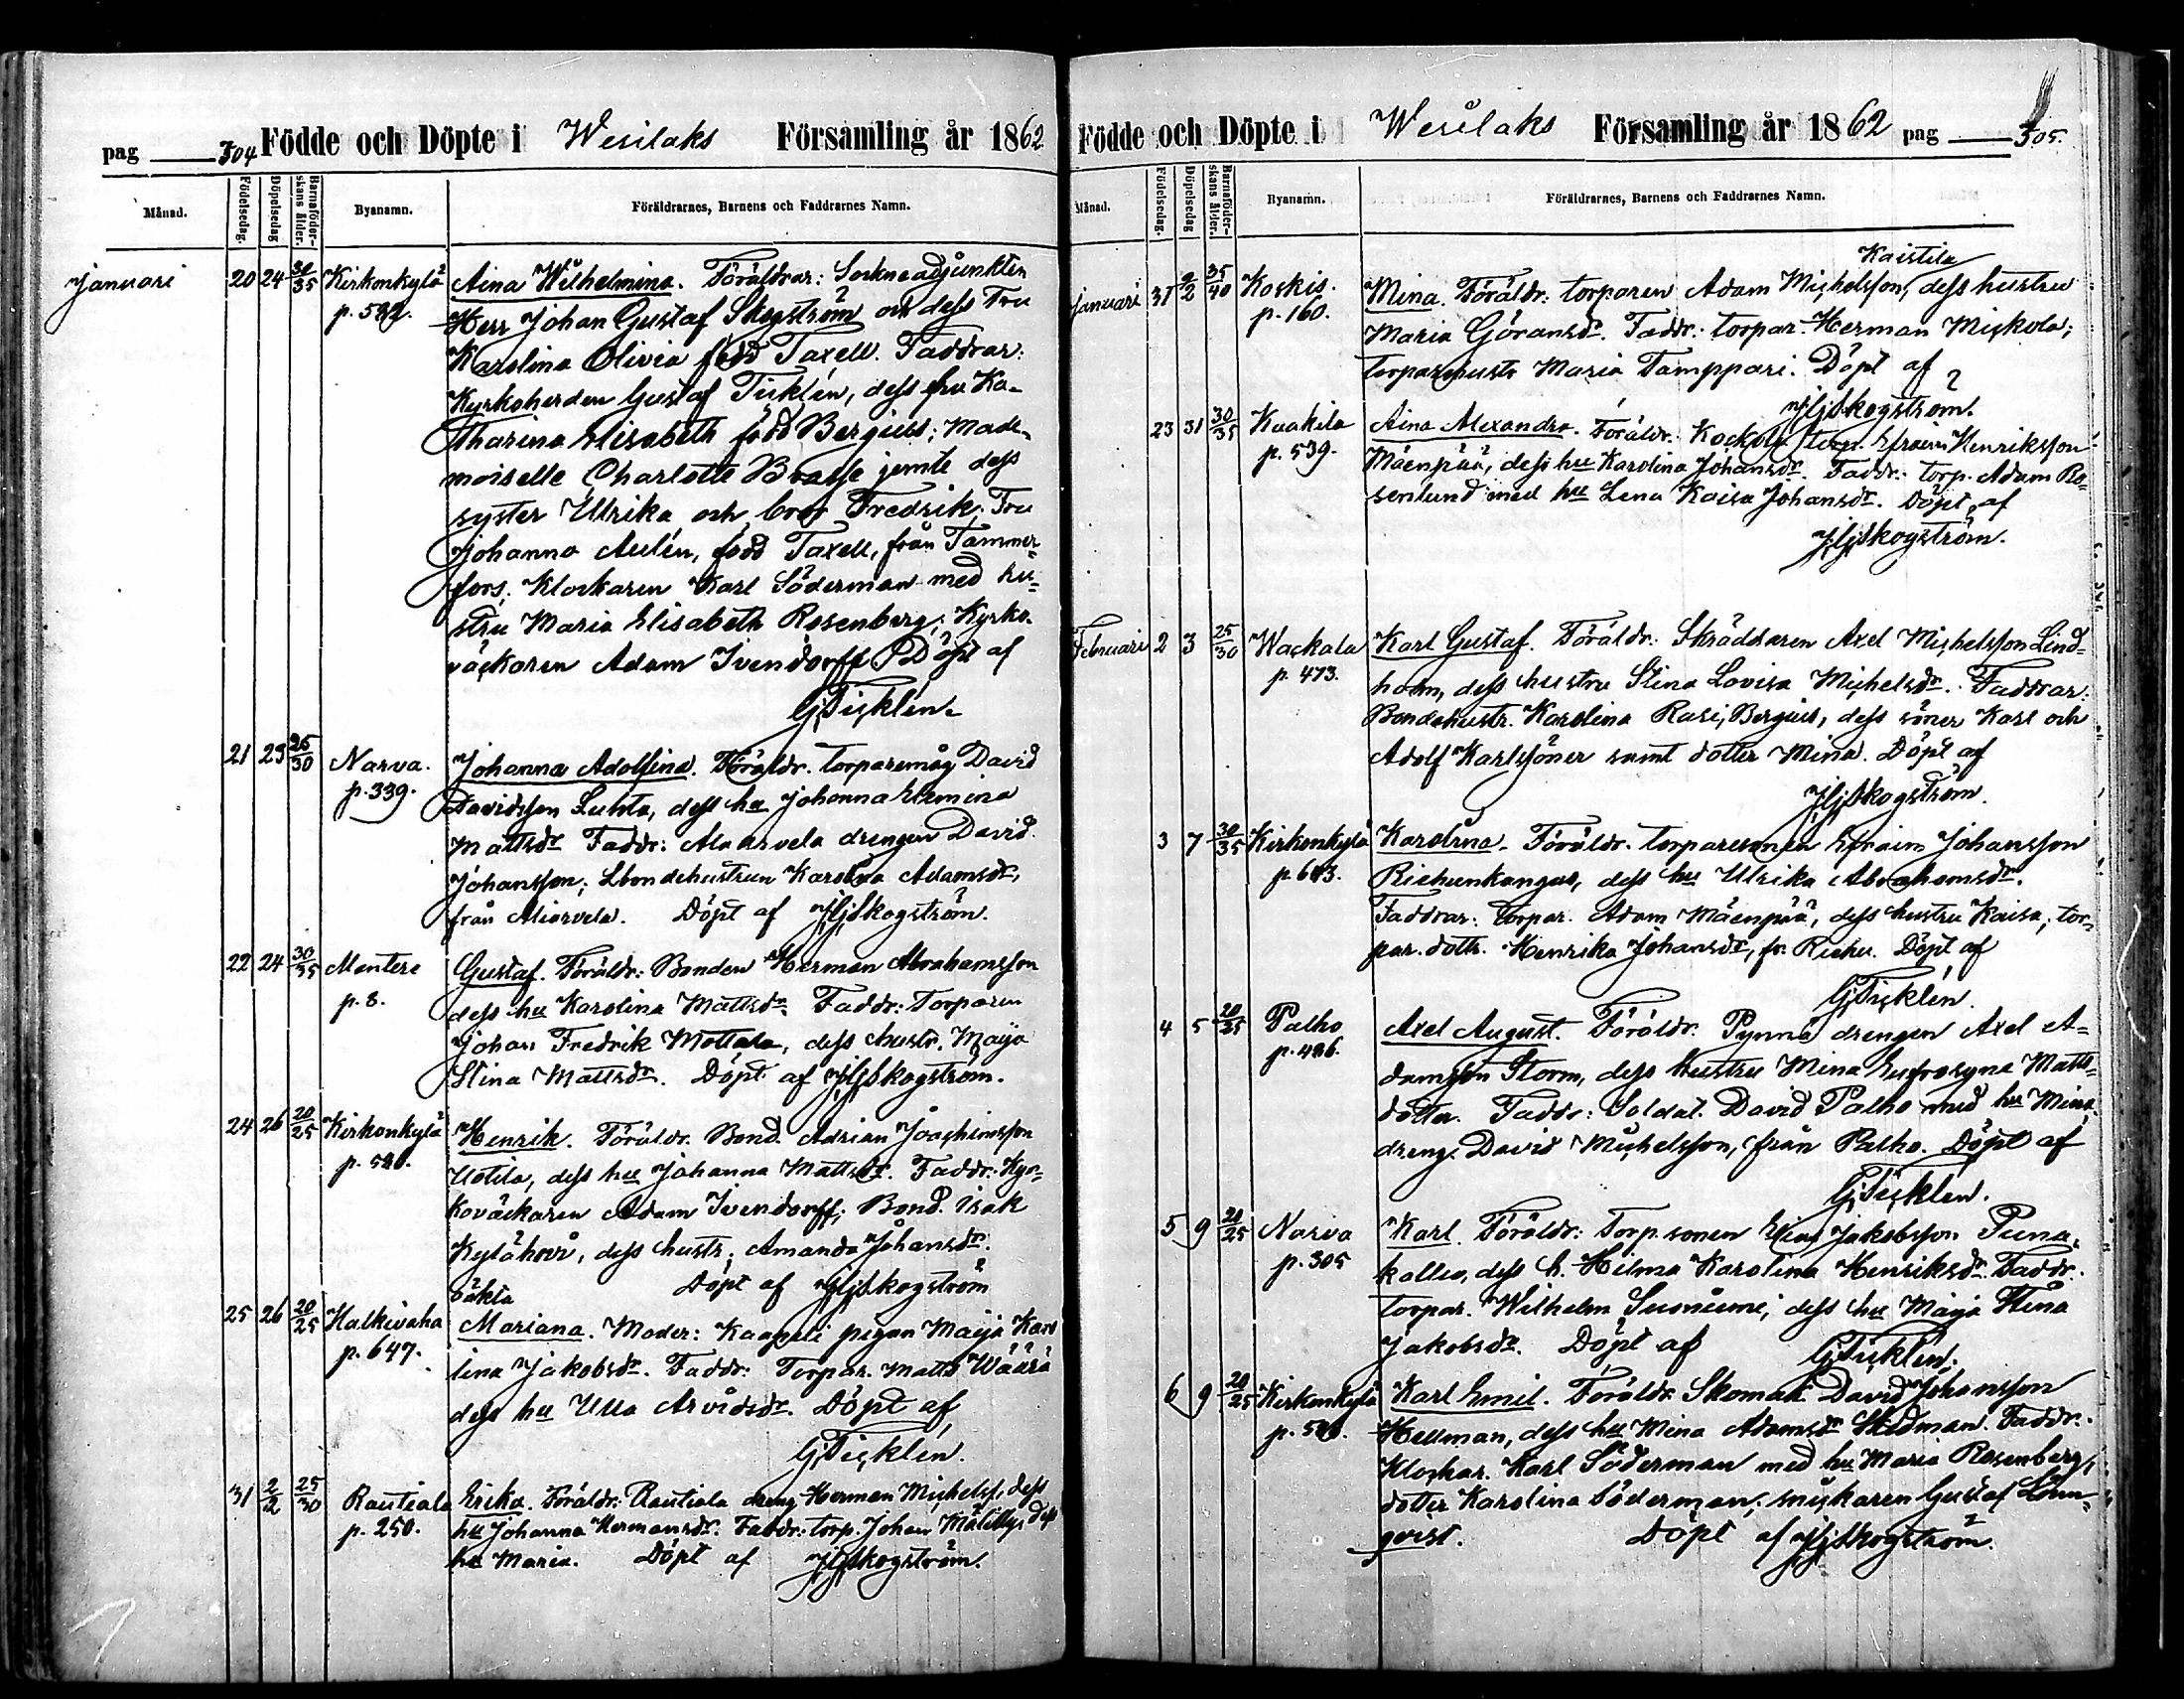 pag 304 Födde och Döpte i Wesilaks Församling år 1862
Månad. Födelsedag. Döpelsedag Barnaföderskans ålder. Byanamn. Föräldrarnes, Barnens och Faddrarnes Namn.
Januari 20 24 30/35 Kirkonkylä Aina Wilhelmina. Föräldrar: Sockneadjunkten
p. Herr Johan Gustaf Skogström och dess Fru
Karolina Olivia född Taxell. Faddrar:
Kyrkoherden Gustaf Ticklén, dess fru Ka-
tharina Elisabeth född Bergius; Made-
moiselle Charlotte Brasse jemte dess
syster Ulrika och bror Fredrik, Fru
Johanna Aulén, född Taxell, från Tammer-
fors; Klockaren Karl Söderman med hu-
stru Maria Elisabeth Rosenberg; Kyrko-
väckaren Adam Ivendorff. Döpt af
GTicklén.
21 23 25/30 Narva. Johanna Adolfina. Föräldr. torparemåg David
p. 339. Davidsson Luhta, dess hu Johanna Hermina
Mattsdr Faddr: Alaarvela drengen David
Johansson; bondehustrun Karolina Adamsdr,
från Aliarvela. Döpt af JGSkogström.
22 24 30/35 Mentere Gustaf. Föräldr: Bonden Herman Abrahamsson
p. 8. dess hu Karolina Mattsdr. Faddr: Torparen
Johan Fredrik Mottala, dess hustr. Maija
Stina Mattsdr. Döpt af JGSkogström.
24 26 20/25 Kirkonkylä Henrik. Föräldr. Bond. Adrian Joachimsson
p. Uotila, dess hu Johanna Mattsdr. Faddr: Kyr-
koväckaren Adam Ivendorff; Bond. Isak
Kylähovi, dess hustr. Amanda Johansdr.
Döpt af JGSkogström
oäkta
25 26 20/25 Halkivaha Mariana. Moder: Kaapeli pigan Maija Karo
p. 647. lina Jakobsdr. Faddr: Torpar. Matts Wäärä
dess hu Ulla Arvidsdr. Döpt af
GTicklén.
31 2/2 25/30 Rautiala Erika. Föräldr: Rautiala dreng Herman Michelss, dess
p. 250. hu Johanna Hermansdr. Faddr: torp. Johan dess
hu Maria. Döpt af JGSkogström.
Födde och Döpte i Wesilaks Församling år 1862 pag 305.
Månad. Födelsedag. Döpelsedag Barnaföderskans ålder. Byanamn. Föräldrarnes, Barnens och Faddrarnes Namn.
Kaistila
Januari 31 2/2 35/40 Koskis. Mina. Föräldr: torparen Adam Michelsson, dess hustru
p. 160. Maria Göransdr. Faddr: torpar. Herman Mickola;
torparehustr Maria Tamppari. Döpt af
JGSkogström.
23 31 30/35 Kuakila Aina Alexandra. Föräldr: torp. Efraim Henriksson
p. 539. Mäenpää, dess hu Karolina Johansdr. Faddr: torp. Adam Ro-
senlund med hu Lena Kaisa Johansdr. Döpt af
JGSkogström.
Februari 2 3 25/30 Wackala Karl Gustaf. Föräldr: Skräddaren Axel Michelsson Lind-
p. 473. holm, dess hustru Stina Lovisa Michelsdr. Faddrar.
Bondehustr. Karolina Rasi, Bergius, dess söner Karl och
Adolf Karlssöner samt dotter Mina. Döpt af
JGSkogström.
3 7 30/35 Kirkonkylä Karolina. Föräldr. torparesonen Efraim Johansson
p. 643. Riehunkangas, dess hu Ulrika Abrahamsdr.
Faddrar: torpar. Adam Mäenpää, dess hustru Kaisa; tor-
par. dottr. Henrika Johansdr, fr. Riehu. Döpt af
GTicklén.
4 5 20/25 Palho Axel August. Föräldr. Pynnä drengen Axel A-
p. 486. damsson Storm, dess hustru Mina Eufrosyna Matts-
dotter. Faddr: Soldat. David Palho med hu Mina,
dreng. David Michelsson, från Palho. Döpt af
GTicklén.
5 9 20/25 Narva Karl. Föräldr: Torp. sonen Elias Jakobsson Puna-
p. 305 kallio, dess h. Hilma Karolina Henriksdr. Faddr.
torpar. Wilhelm Suoniemi, dess hu Maija Stina
Jakobsdr. Döpt af GTicklén.
6 9 20/25 Kirkonkylä Karl Emil. Föräldr. Skomak. David Johansson
p. Hellman, dess hu Mina Adamsdr Stedman. Faddr.
Klockar. Karl Söderman med hu Maria Rosenberg,
dotter Karolina Söderman; snickaren Gustaf Lönn-
qvist. Döpt af JGSkogström.